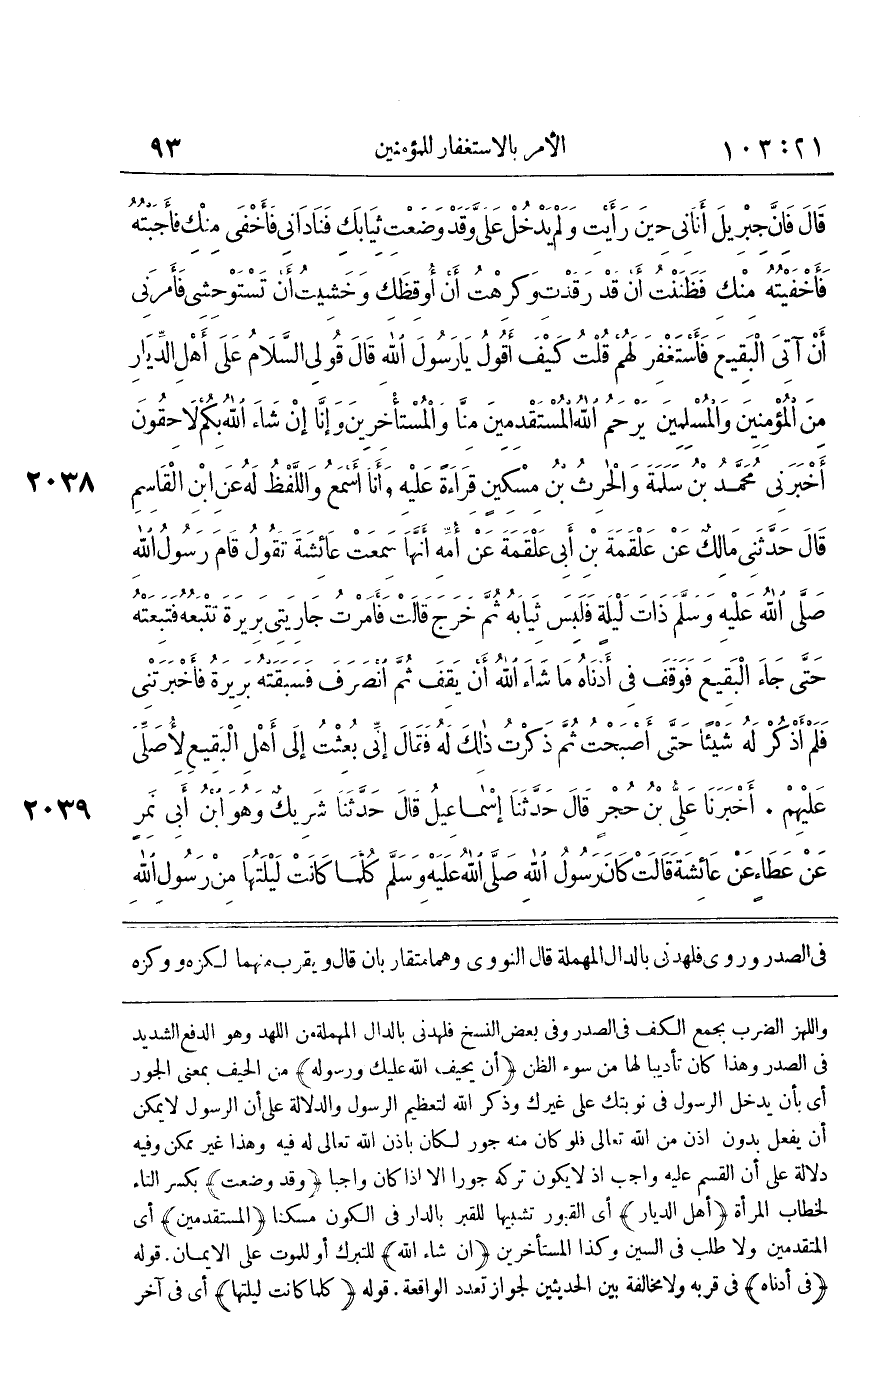 ٢١ : ١٠٣ الأمر بالاستغفار للمؤمنين ٩٣
قَالَ فَانَّ جِبْرِيلَ أَتَانِى حِينَ رَأَيْتِ وَلَمْ يَدْخُلْ عَلَىَّ وَقَدْ وَضَعْتِ ثِيَابَكِ فَنَادَانِى فَأَخْفَى مِنْكِ فَأَجَبْتُهُ
فَأَخْفَيْتُهُ مِنْكِ فَظَنَنْتُ أَنْ قَدْ رَقَدْتِ وَكَرِهْتُ أَنْ أُوقِظَكِ وَخَشِيتُ أَنْ تَسْتَوْحِشِى فَأَمَرَنِى
أَنْ آتِىَ الْبَقِيعَ فَأَسْتَغْفِرَ لَهُمْ قُلْتُ كَيْفَ أَقُولُ يَارَسُولَ اللهِ قَالَ قُولِى السَّلَامُ عَلَى أَهْلِ الدِّيَارِ
مِنَ الْمُؤْمِنِينَ وَالْمُسْلِمِينَ يَرْحَمُ اللهُ الْمُسْتَقْدِمِينَ مِنَّا وَالْمُسْتَأْخِرِينَ وَإِنَّا إِنْ شَاءَ اللهُ بِكُمْ لَاحِقُونَ
أَخْبَرَنِى مُحَمَّدُ بْنُ سَلَمَةَ وَالْحٰرِثُ بْنُ مِسْكِينٍ قِرَاءَةً عَلَيْهِ وَأَنَا أَسْمَعُ وَاللَّفْظُ لَهُ عَنِ ابْنِ الْقَاسِمِ ٢٠٣٨
قَالَ حَدَّثَنِى مَالِكٌ عَنْ عَلْقَمَةَ بْنِ أَبِى عَلْقَمَةَ عَنْ أُمِّهِ أَنَّهَا سَمِعَتْ عَائِشَةَ تَقُولُ قَامَ رَسُولُ اللهِ
صَلَّى اللهُ عَلَيْهِ وَسَلَّمَ ذَاتَ لَيْلَةٍ فَلَبِسَ ثِيَابَهُ ثُمَّ خَرَجَ قَالَتْ فَأَمَرْتُ جَارِيَتِى بَرِيرَةَ تَتْبَعُهُ فَتَبِعَتْهُ
حَتَّى جَاءَ الْبَقِيعَ فَوَقَفَ فِى أَدْنَاهُ مَا شَاءَ اللهُ أَنْ يَقِفَ ثُمَّ انْصَرَفَ فَسَبَقَتْهُ بَرِيرَةُ فَأَخْبَرَتْنِى
فَلَمْ أَذْكُرْ لَهُ شَيْئًا حَتَّى أَصْبَحْتُ ثُمَّ ذَكَرْتُ ذٰلِكَ لَهُ فَقَالَ إِنِّى بُعِثْتُ إِلَى أَهْلِ الْبَقِيعِ لِأُصَلِّىَ
عَلَيْهِمْ . أَخْبَرَنَا عَلِىُّ بْنُ حُجْرٍ قَالَ حَدَّثَنَا إِسْمَاعِيلُ قَالَ حَدَّثَنَا شَرِيكٌ وَهُوَ ابْنُ أَبِى نَمِرٍ ٢٠٣٩
عَنْ عَطَاءٍ عَنْ عَائِشَةَ قَالَتْ كَانَ رَسُولُ اللهِ صَلَّى اللهُ عَلَيْهِ وَسَلَّمَ كُلَّمَا كَانَتْ لَيْلَتُهَا مِنْ رَسُولِ اللهِ
فى الصدر وروى فلهدنى بالدال المهملة قال النووى وهما متقاربان قال ويقرب منهما لكزه ووكزه
واللهز الضرب بجمع الكف فى الصدر وفى بعض النسخ فلهدنى بالدال المهملة من اللهد وهو الدفع الشديد
فى الصدر وهذا كان تأديبا لها من سوء الظن ﴿أن يحيف الله عليك ورسوله﴾ من الحيف بمعنى الجور
أى بأن يدخل الرسول فى نوبتك على غيرك وذكر الله لتعظيم الرسول والدلالة على أن الرسول لايمكن
أن يفعل بدون اذن من الله تعالى فلو كان منه جور لكان باذن الله تعالى له فيه وهذا غير ممكن وفيه
دلالة على أن القسم عليه واجب اذ لايكون تركه جورا الا اذا كان واجبا ﴿وقد وضعت﴾ بكسر التاء
لخطاب المرأة ﴿أهل الديار﴾ أى القبور تشبيها للقبر بالدار فى الكون مسكنا ﴿المستقدمين﴾ أى
المتقدمين ولا طلب فى السين وكذا المستأخرين ﴿ان شاء الله﴾ للتبرك أو للموت على الايمان. قوله
﴿فى أدناه﴾ فى قربه ولا مخالفة بين الحديثين لجواز تعدد الواقعة . قوله ﴿كلما كانت ليلتها﴾ أى فى آخر